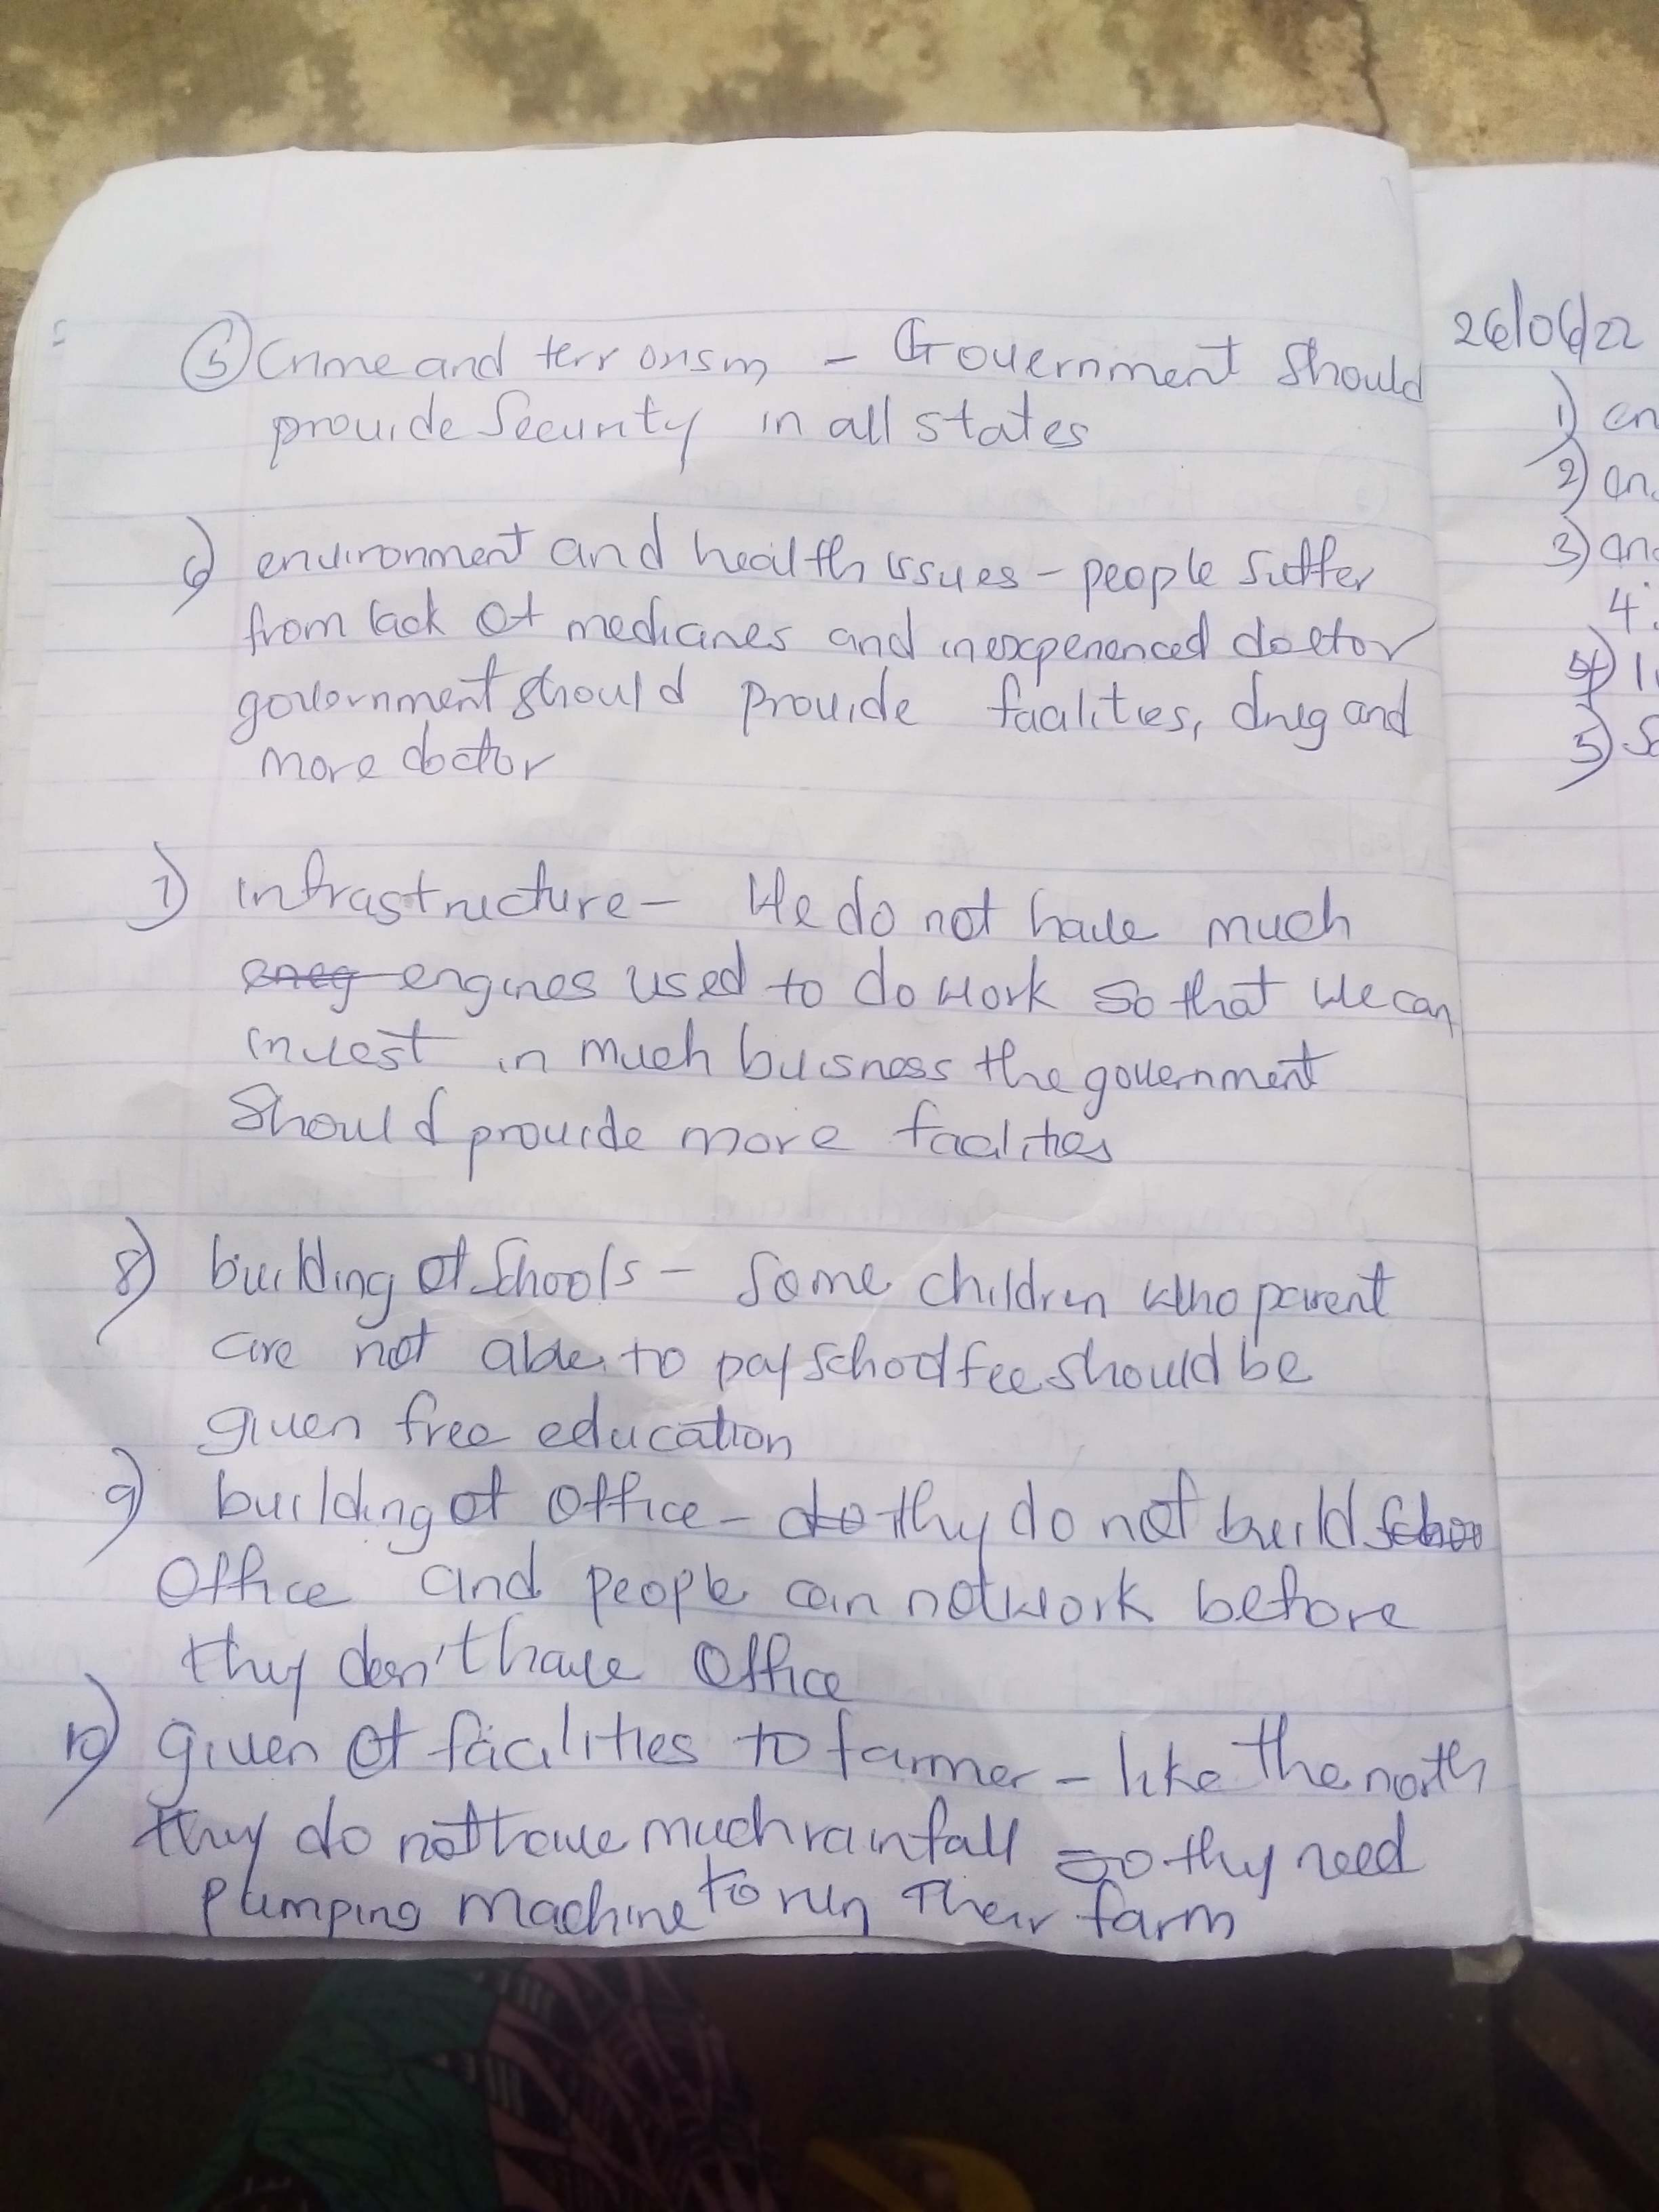 5) Crime and terrorism - Government should
provide Security in all states
6) environment and health issues - people suffer
from lack of medicines and inexperienced doctor
government should provide facilities, drug and
more doctor
7) infrastructure - We do not have much
eneg engines used to do work so that we can
invest in much buisness the government
Should provide more facilities
8) building of schools - Some children who parent
are not able to pay school fee should be
given free education
9) building of office - do thy do not build schoo
Office and people can not work before
they don't have office
10) given of facilities to farmer - like the north
they do not have much rainfall so thy need
pumping machine to run their farm
26/06/22
1)
2)
3)
4.
4)
5)